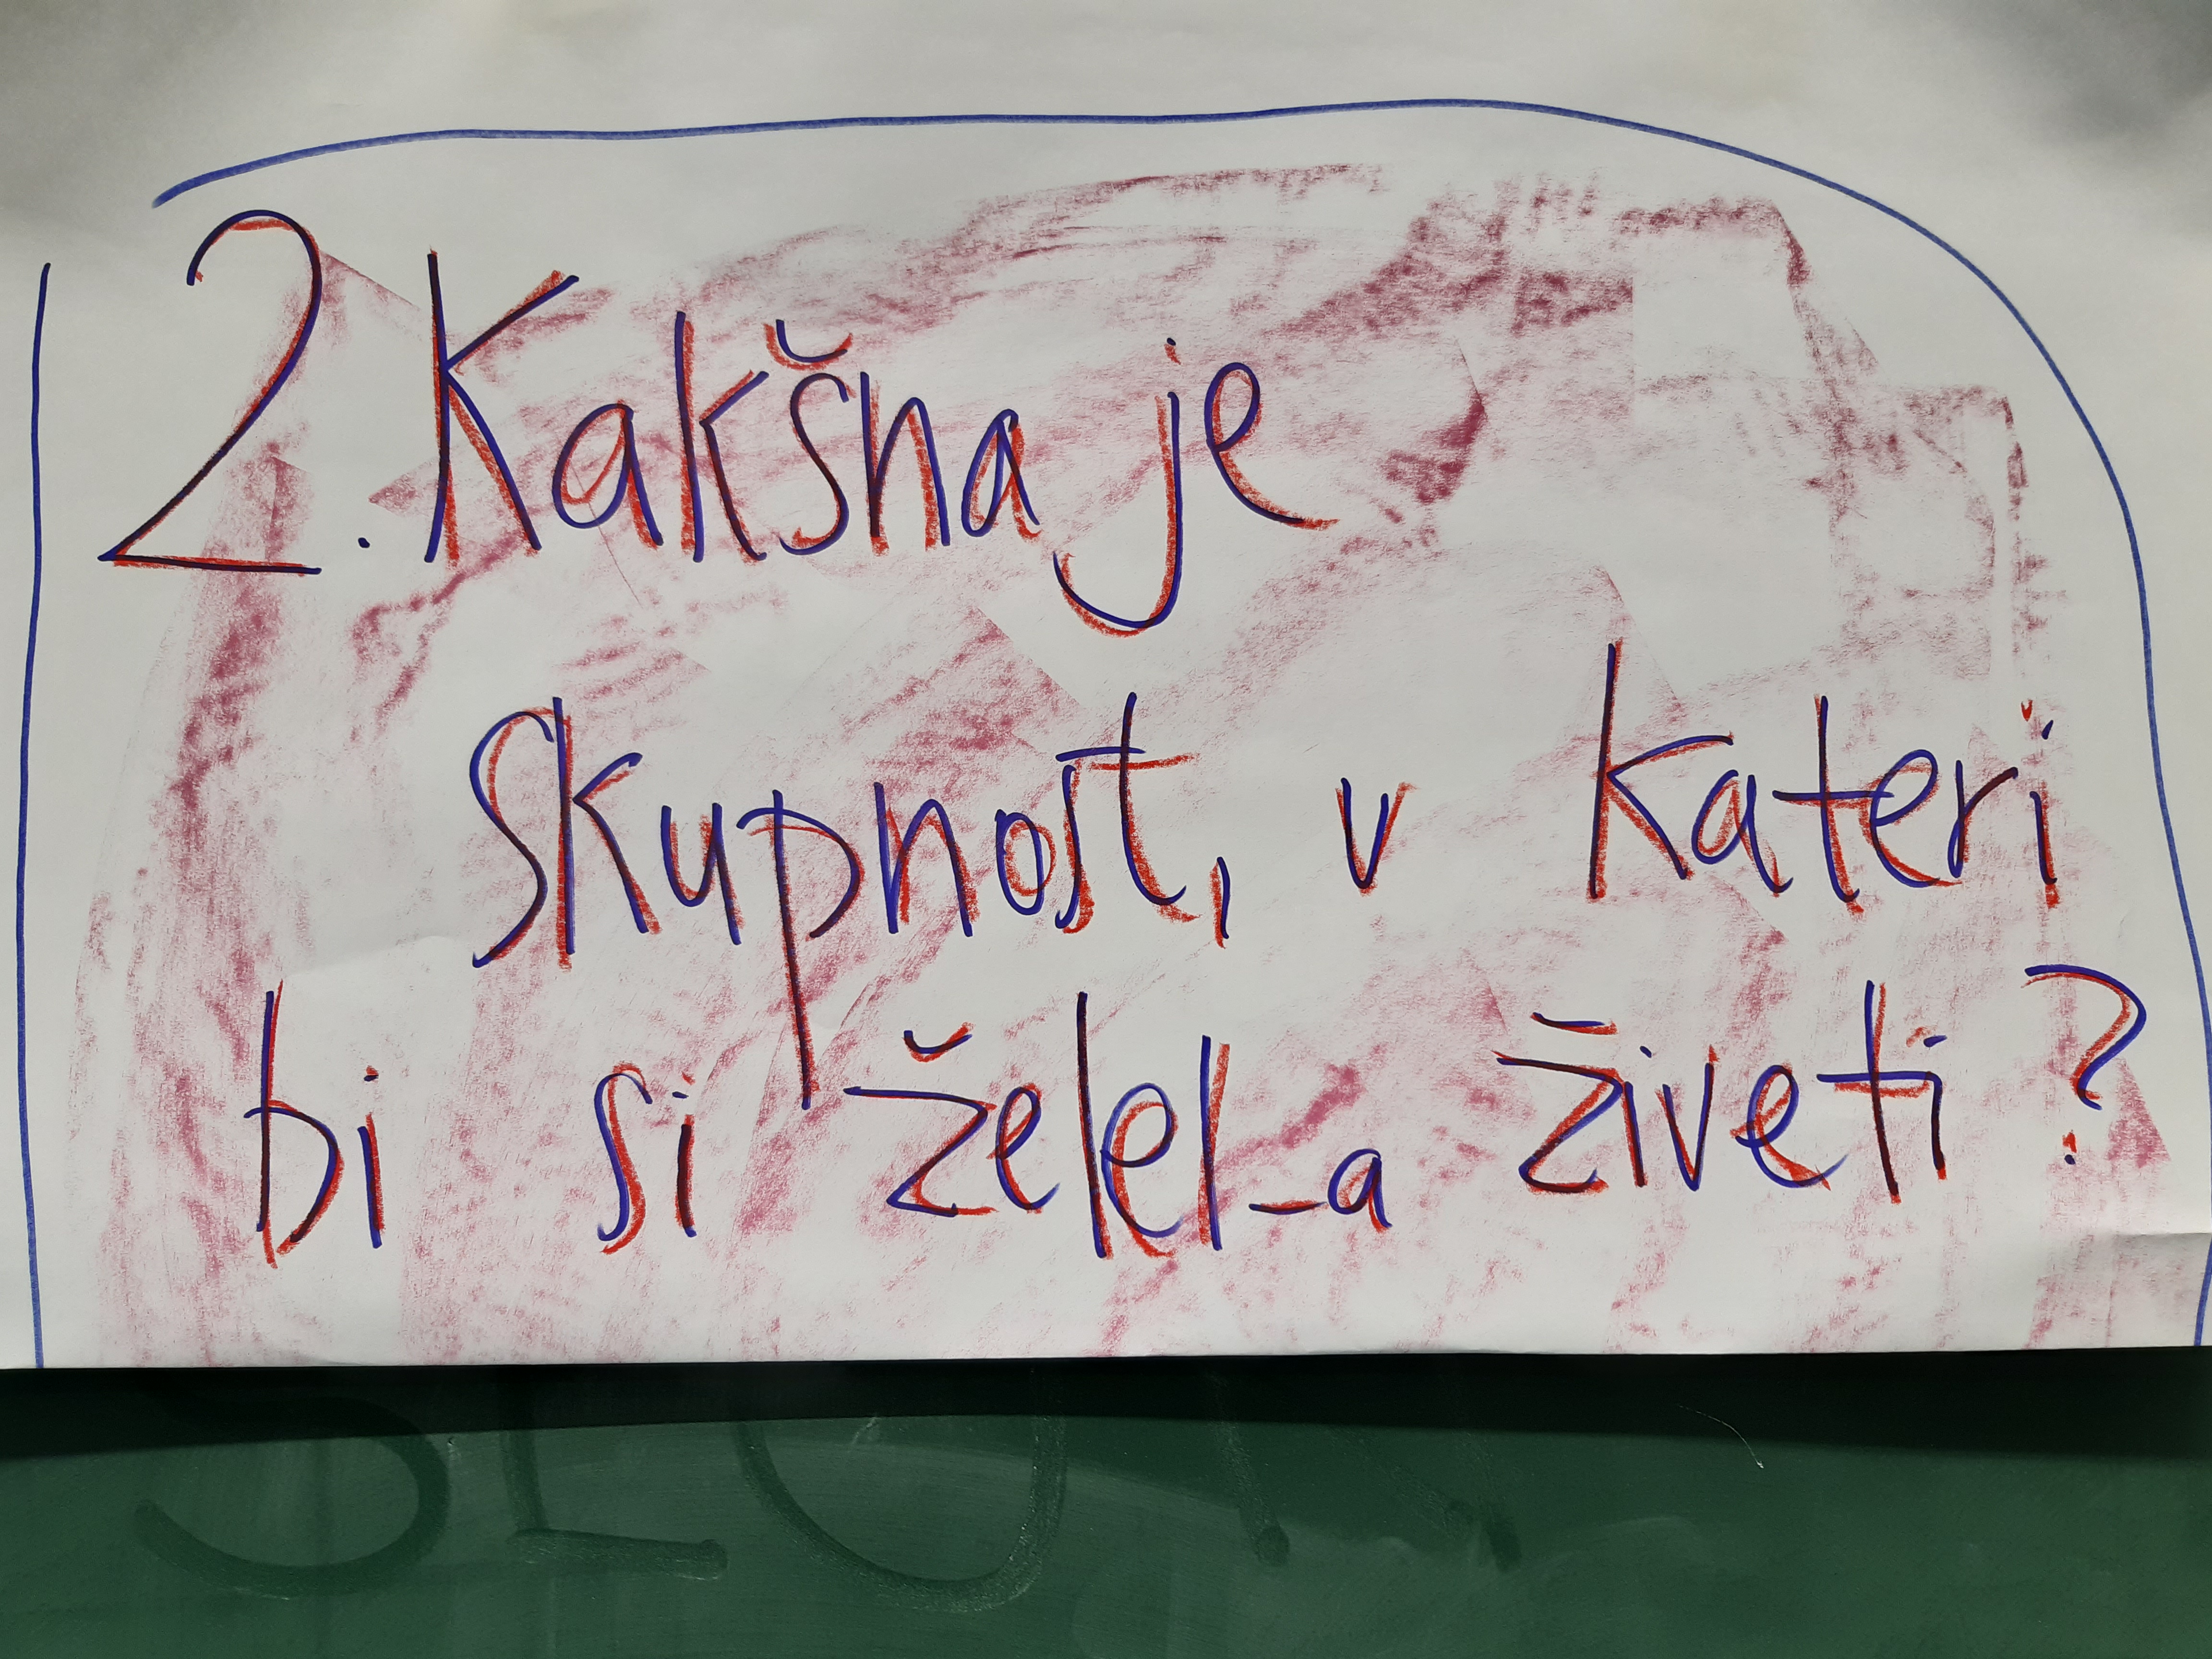 2. Kakšna je
skupnost, v kateri
bi si želel_a živeti?